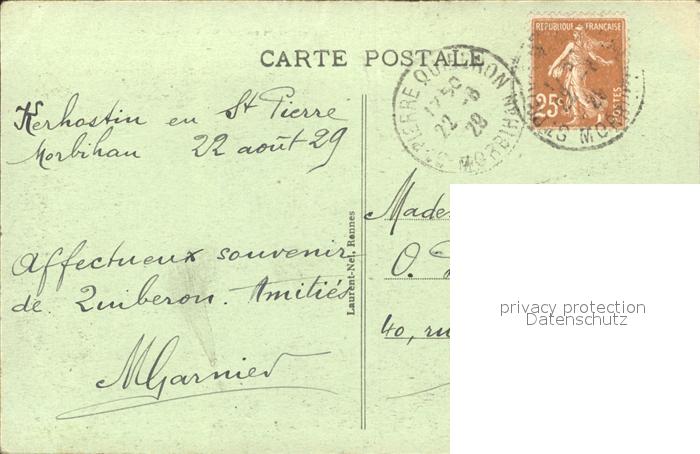 CARTE POSTALE
REPUBLIQUE FRANÇAISE
25c
POSTES
St PIERRE QUIBERON
17 50
22 - 8
28
MORBIHAN
Kerhostin en St Pierre
Morbihan 22 août 29
Affectueux souvenir
de Quiberon. Amitiés
MGarnier
Laurent-Nel, Rennes
Made
O.
40, ru
privacy protection
Datenschutz